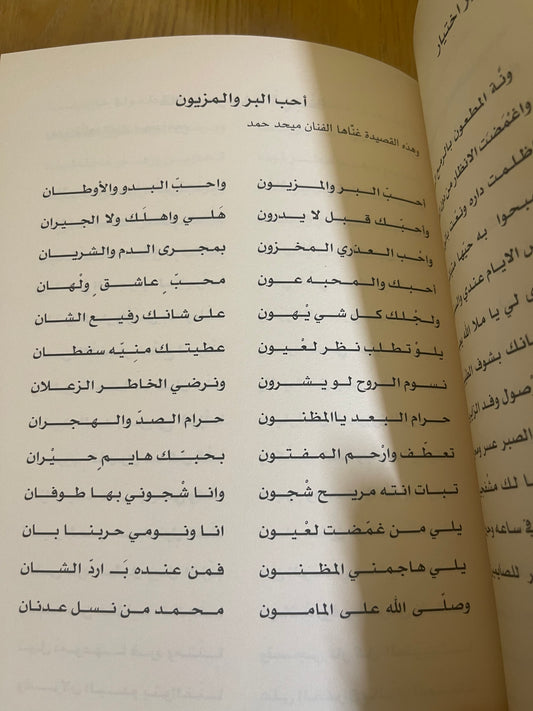 أحب البر والمزيون
وهذه القصيدة غنّاها الفنان ميحد حمد
أحبّ البر والمزيون واحبّ البدو والأوطان
وأحبّك قبل لا يدرون هَلي واهلَك ولا الجيران
واحب العذري المخزون بمجرى الدم والشريان
أحبك والمحبه عون محبّ ٍ عاشق ٍ ولْهان
ولجْلك كل شي يْهون على شانك رفيع الشان
يلوْ تطلب نظر لعْيون عطيتك منِيّه سفطان
نسوم الروح لو يشرون ونرضي الخاطر الزعلان
حرام البعد ياالمظنون حرام الصدّ والهجران
تعطّف وارْحم المفتون بحبّك هايمٍ حيْران
تبات انته مريح شْجون وانا شْجوني بها طوفان
يلي من غمّضت لعْيون انا ونومي حربنا بان
يلي هاجمني المظنون فمن عنده بَـ اردّ الشان
وصلّى الله على المامون محمد من نسل عدنان
ر اختيار
ونّة المطعون بالرمح
ظلمت داره ونغت